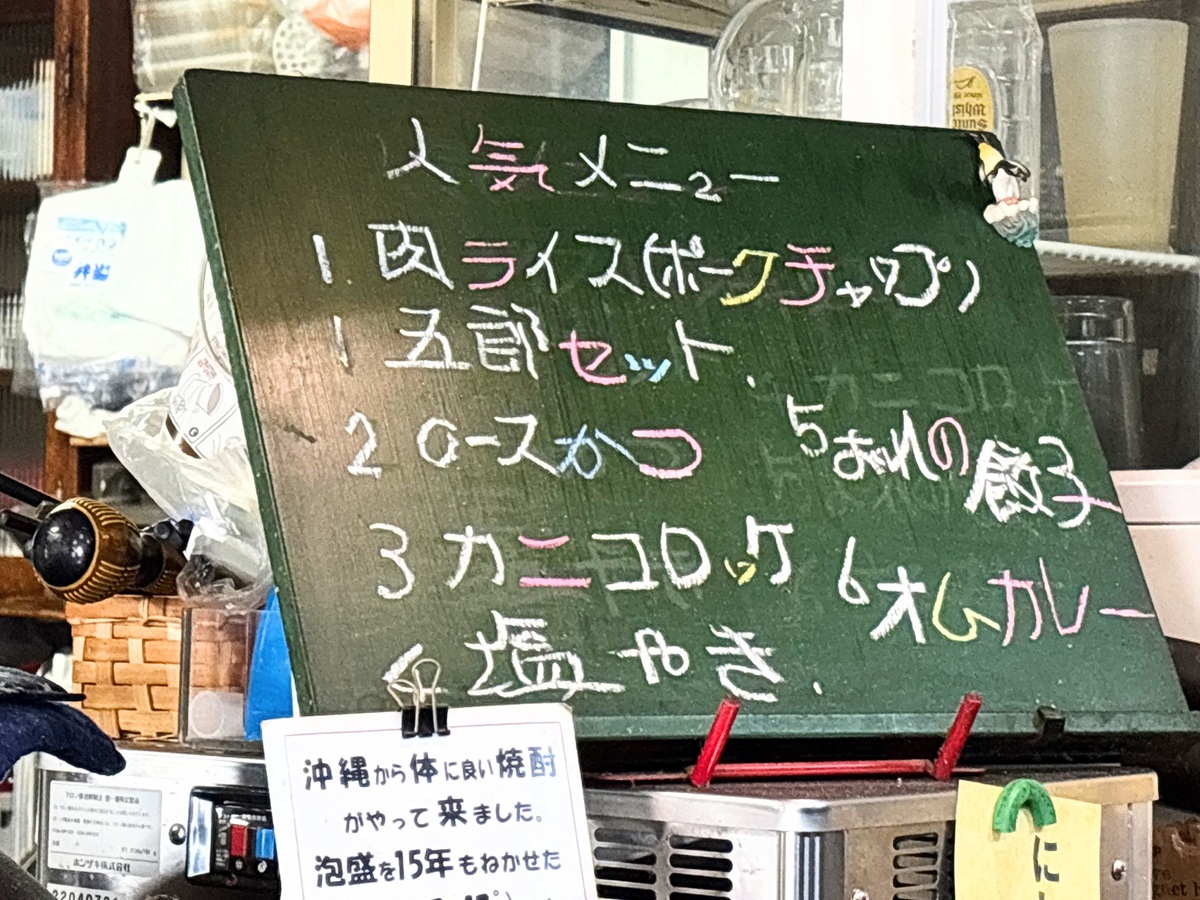 人気メニュー
1. 肉ライス(ポークチャップ)
1 五郎セット.
2 ロースかつ
3 カニコロッケ
塩やき.
5 おれの餃子
6 オムカレー
沖縄から体に良い焼酎
がやって来ました。
泡盛を15年もねかせた
ホシザキ株式会社
に